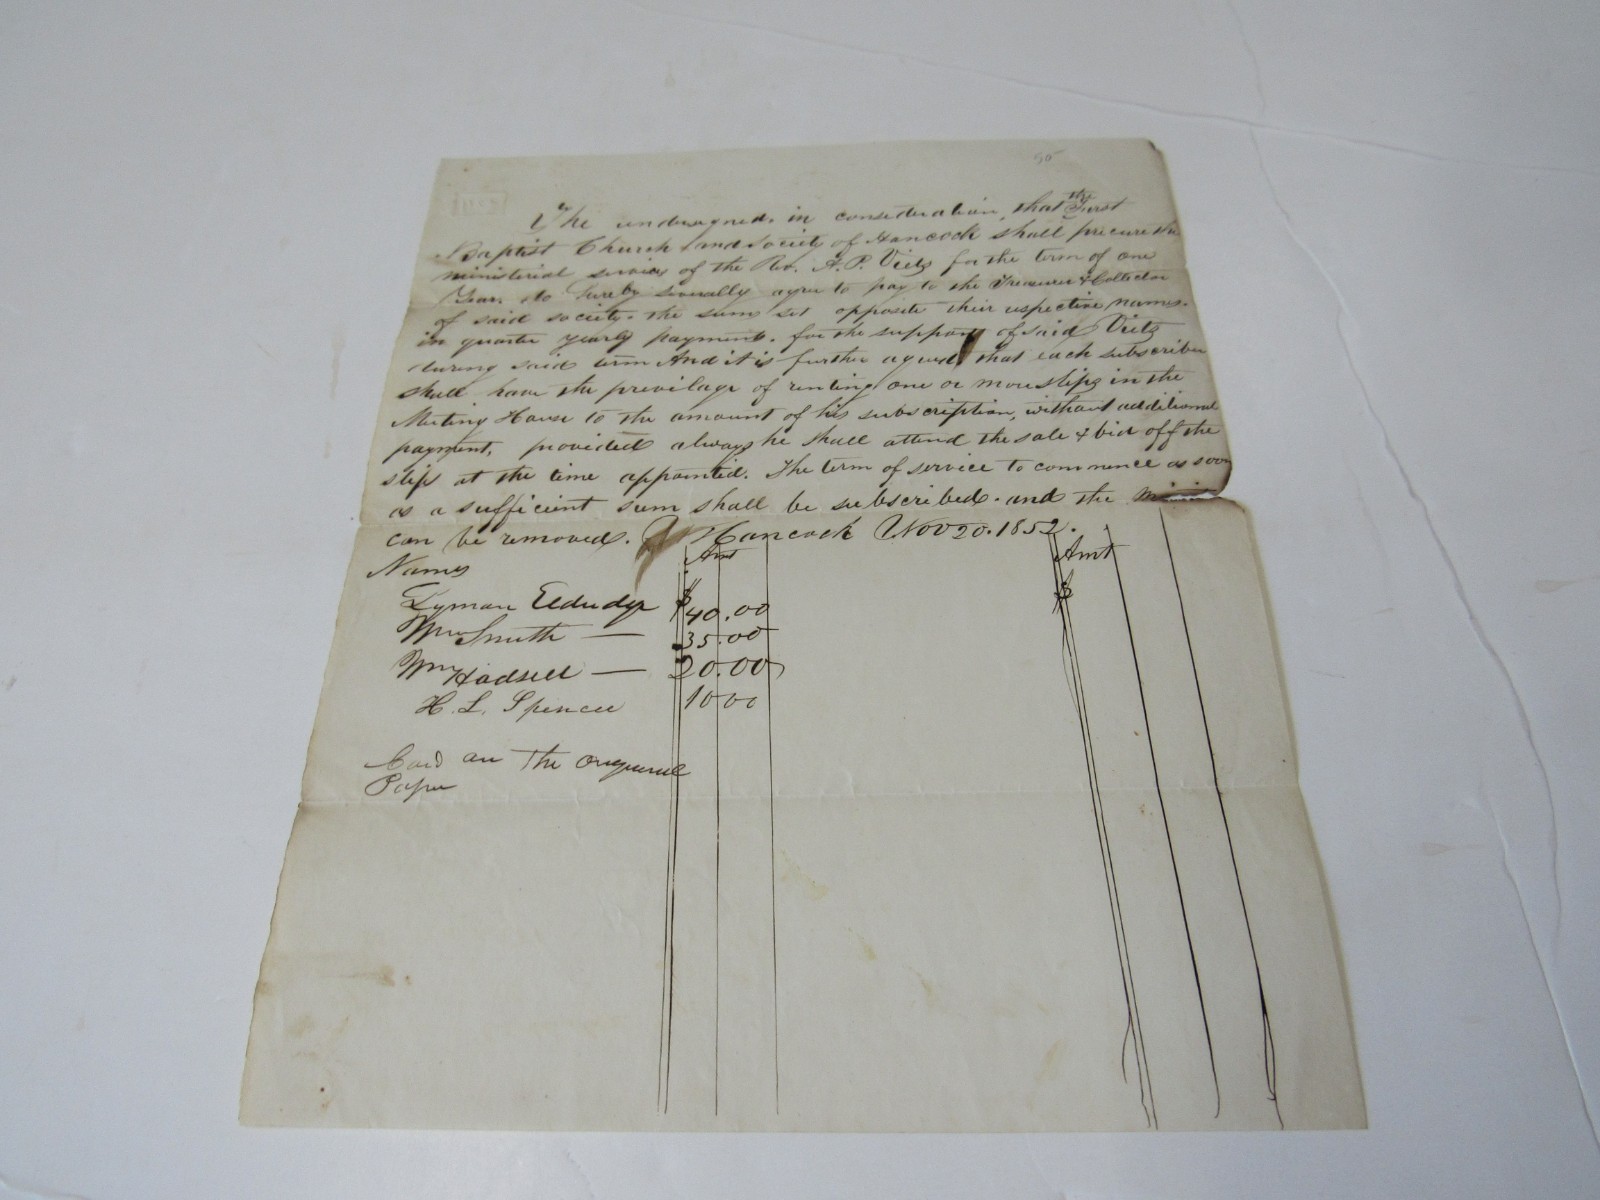 50
The undersigned, in consideration, that the First
Baptist Church and Society of Hancock shall procure the
ministerial services of the Rev. A. P. Viets for the term of one
Year. do hereby severally agree to pay to the Treasurer & Collector
of said society. the sum set opposite their respective names.
in quarter yearly payment. for the support of said Viets
during said term And it is further agreed that each subscriber
shall have the previlage of renting one or more slips in the
Meeting House to the amount of his subscription, without additional
payment, provided always he shall attend the sale & bid off the
slip at the time appointed. The term of service to commence as soon
as a sufficient sum shall be subscribed. and the
can be removed. Hancock Nov 20. 1852.
Names Amt Amt
Lyman Eldredge $ 40.00 $
Wm Smith — 35.00
Wm Hadsell — 20.00
H. L. Spencer 10 00
on The Original
Paper